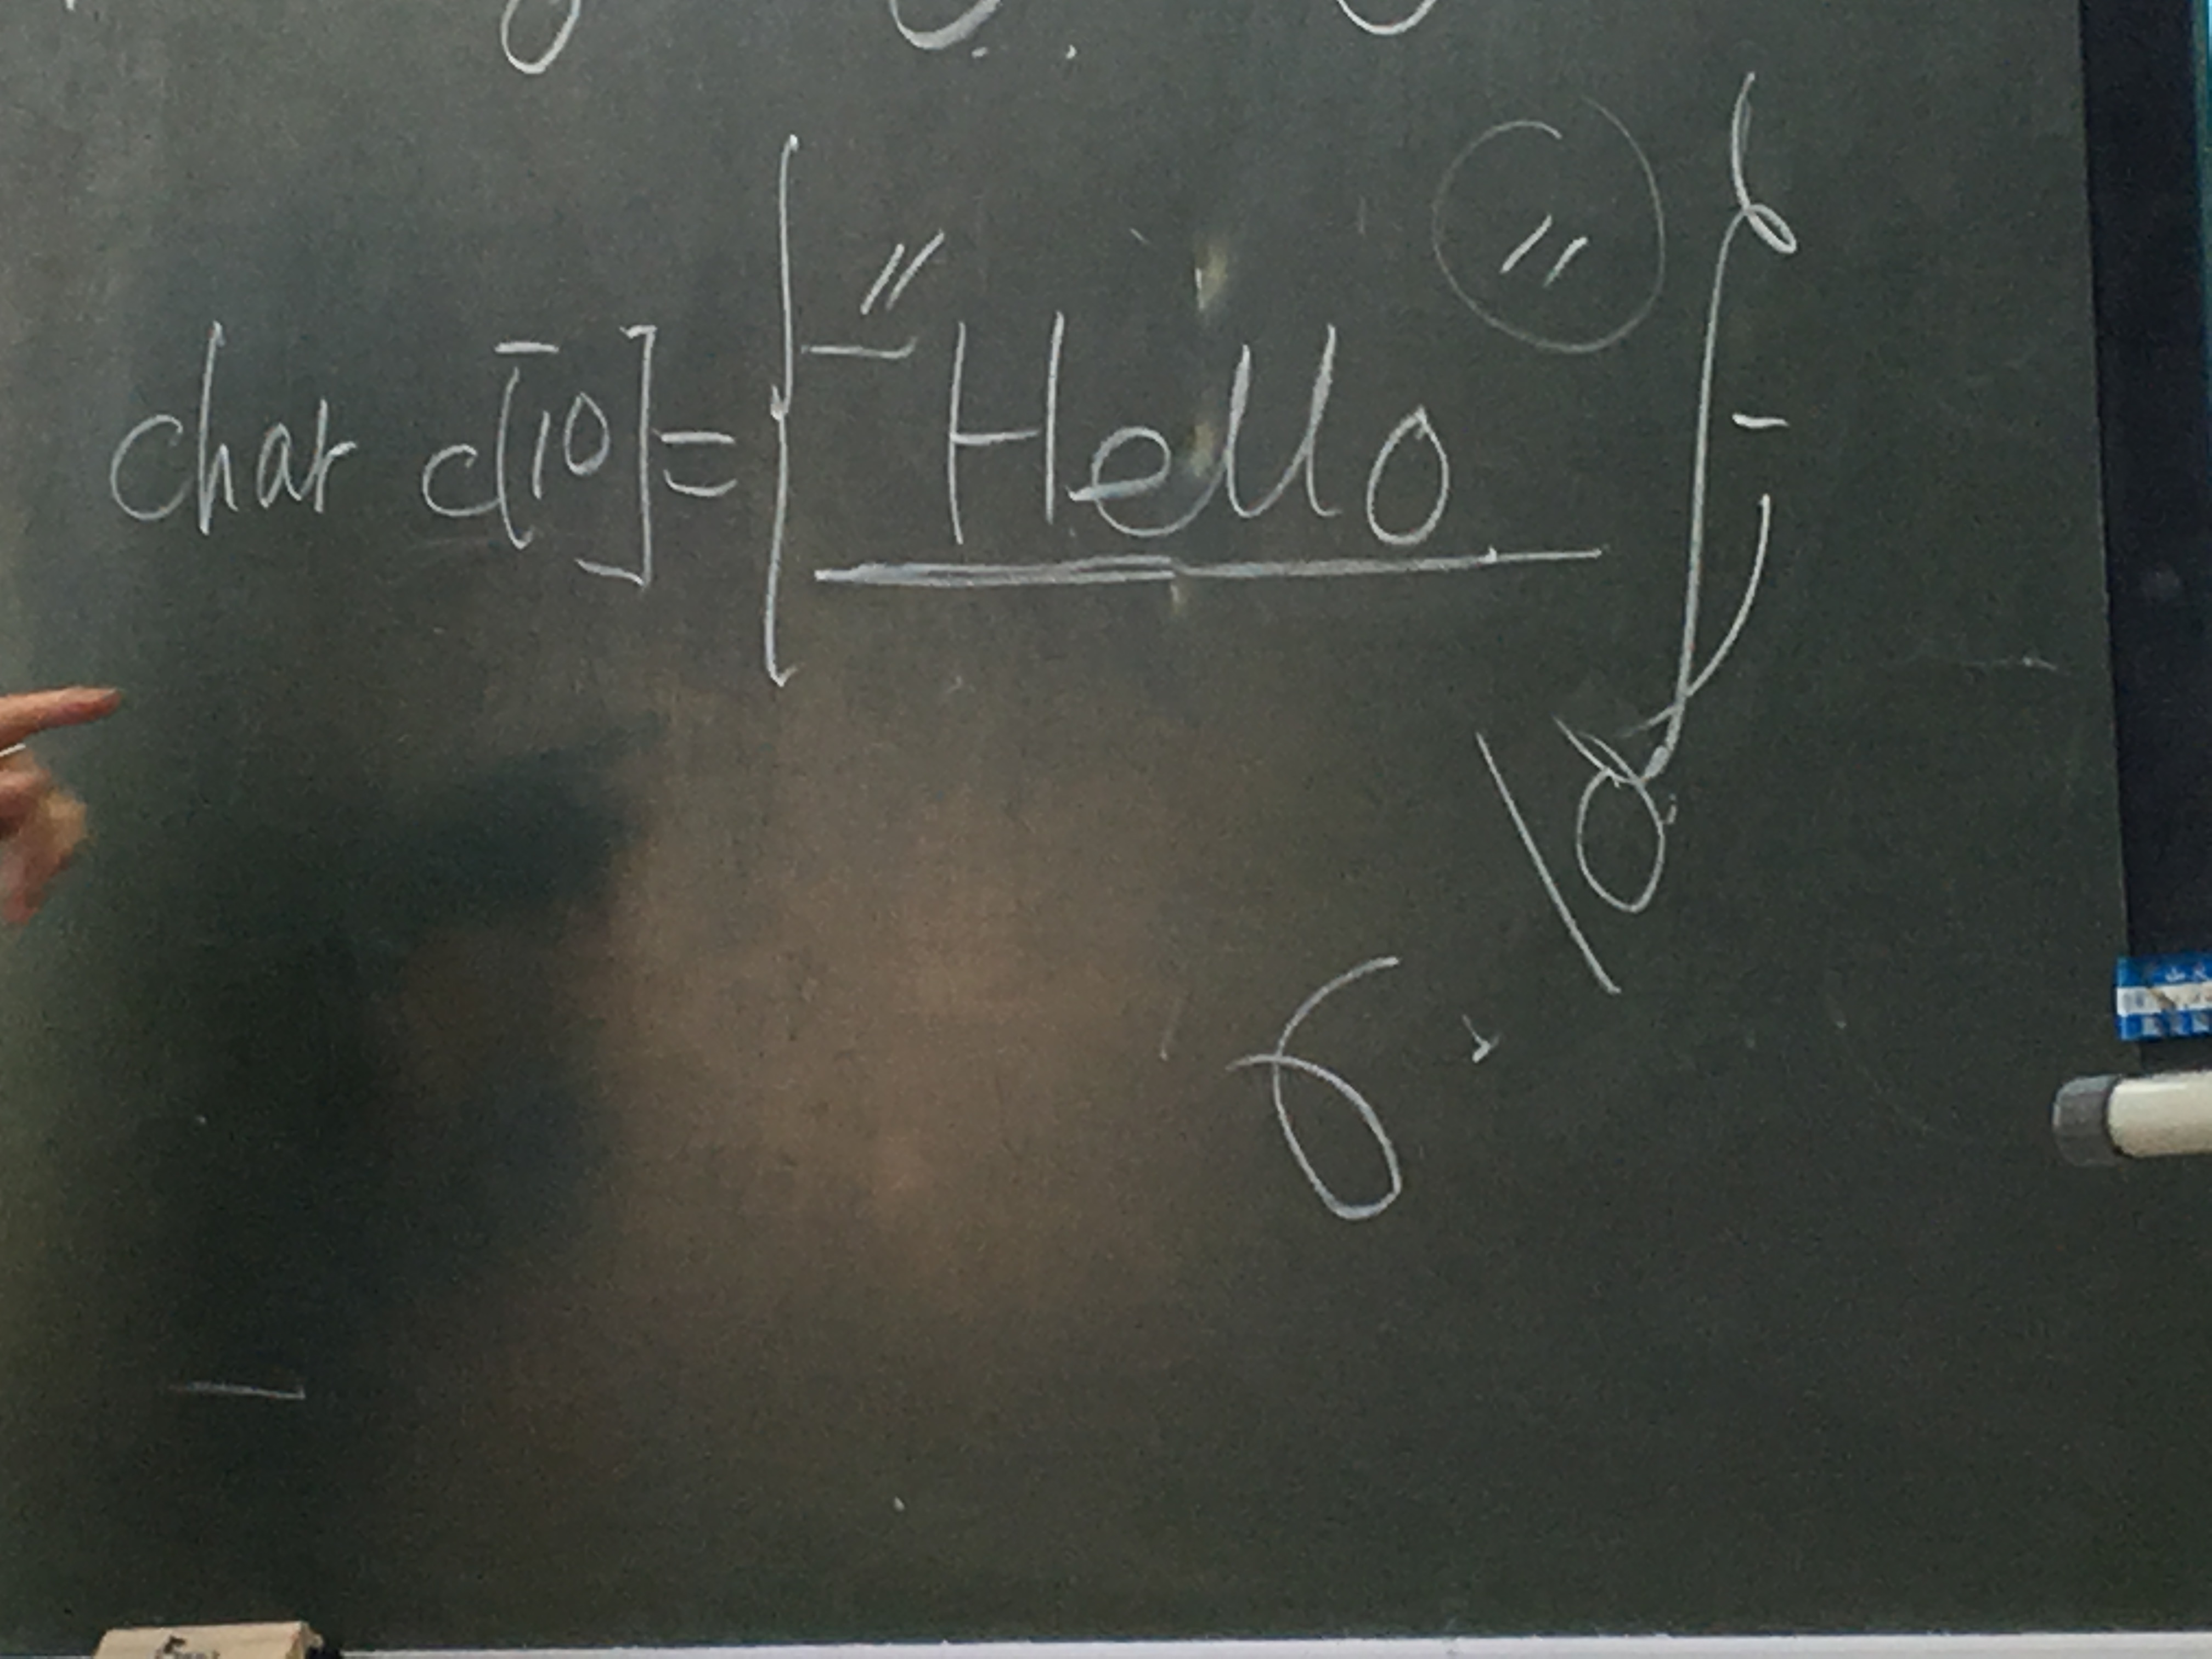 char c[10]={"Hello"}
\0
6